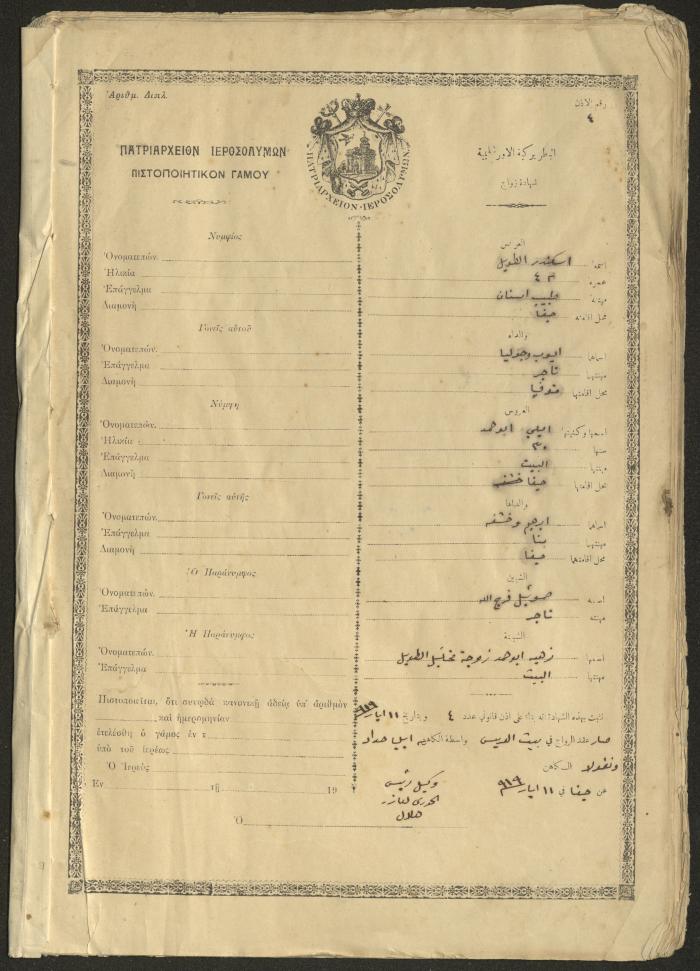 Ἀριθμ. Διπλ.
ΠΑΤΡΙΑΡΧΕΙΟΝ ΙΕΡΟΣΟΛΥΜΩΝ
ΠΙΣΤΟΠΟΙΗΤΙΚΟΝ ΓΑΜΟΥ
ΠΑΤΡΙΑΡΧΕΙΟΝ·ΙΕΡΟΣΟΛΥΜΩΝ
Νυμφίος
Ὀνοματεπών.
Ἡλικία
Ἐπάγγελμα
Διαμονή
Γονεῖς αὐτοῦ
Ὀνοματεπών.
Ἐπάγγελμα
Διαμονή
Νύμφη
Ὀνοματεπών.
Ἡλικία
Ἐπάγγελμα
Διαμονή
Γονεῖς αὐτῆς
Ὀνοματεπών.
Ἐπάγγελμα
Διαμονή
Ὁ Παράνυμφος
Ὀνοματεπών.
Ἐπάγγελμα
Ἡ Παράνυμφος
Ὀνοματεπών.
Ἐπάγγελμα
Πιστοποιεῖται, ὅτι συνῳδὰ κανονικῇ ἀδείᾳ ὑπ' ἀριθμὸν
καὶ ἡμερομηνίαν
ἐτελέσθη ὁ γάμος ἐν τ
ὑπὸ τοῦ ἱερέως
Ὁ Ἱερεύς
Ἐν τῇ 19
Ὁ
رقم الاذن
٤
البطريركية الاورشليمية
شهادة زواج
العريس
اسمه اسكندر الطويل
عمره ٣٤
مهنته طبيب اسنان
محل اقامته حيفا
والداه
اسماهما ايوب وجوليا
مهنتهما تاجر
محل اقامتهما
العروس
اسمها وكنيتها ايلي ابوحمد
سنها ٣٠
مهنتها البيت
محل اقامتها حيفا
والداها
اسماهما
مهنتهما بنا
محل اقامتهما حيفا
الشبين
اسمه صموئيل فرج الله
مهنته تاجر
الشبينة
اسمها زهيه ابوحمد زوجة مخائيل الطويل
مهنتها البيت
تثبت بهذه الشهادة انه بناء على اذن قانوني عدد ٤ وبتاريخ ١١ ايار ٩١٩
صار عقد الزواج في بيت العريس بواسطة الكاهن ايبل حداد
ونقولا
عن حيفا في ١١ ايار ٩١٩
وكيل رئيس
الخوري
هلال